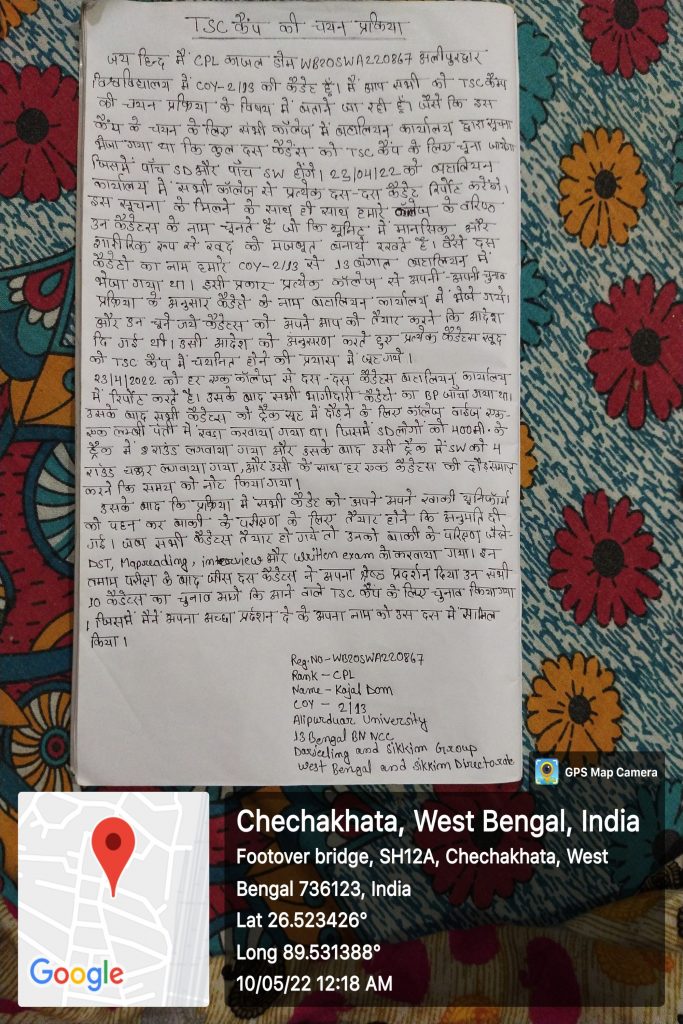 TSC कैंप की चयन प्रक्रिया
जय हिन्द मैं CPL काजल डोम WB20SWA220867 अलीपुरद्वार
विश्वविद्यालय में COY-2/13 की कैडेट हूँ। मैं आप सभी को TSC कैम्प
की चयन प्रक्रिया के विषय में बताने जा रही हूँ। जैसे कि इस
कैंप के चयन के लिए सभी कॉलेज में बटालियन कार्यालय द्वारा सूचना
भेजा गया था कि कुल दस कैडेंस को TSC कैंप के लिए चुना जायेगा
जिसमें पाँच SD और पाँच SW होंगे। 23/04/22 को बटालियन
कार्यालय में सभी कॉलेज से प्रत्येक दस-दस कैडेट रिपोर्ट करेंगे।
इस सूचना के मिलने के साथ ही साथ हमारे कॉलेज के वरिष्ठ
उन कैडेटस के नाम चुनते है जो कि यूनिट में मानसिक और
शारीरिक रूप से खुद को मजबूत बनाये रखते है। वैसे दस
कैडेटो का नाम हमारे COY-2/13 से 13 बंगाल बटालियन में
भेजा गया था। इसी प्रकार प्रत्येक कॉलेज से अपनी अपनी चुनाव
प्रक्रिया के अनुसार कैडेटो के नाम बटालियन कार्यालय में भेजे गये।
और उन चुने गये कैडेटस को अपने आप को तैयार करने कि आदेश
दि गई थी। उसी आदेश को अनुसरण करते हुए प्रत्येक कैडेटस खुद
को TSC कैंप में चयनित होने की प्रयास में जुट गये।
23/4/2022 को हर एक कॉलेज से दस-दस कैडेटस बटालियन कार्यालय
में रिपोर्ट करते है। उसके बाद सभी भागीदारी कैडेटो का BP जाँचा गया था।
उसके बाद सभी कैडेटस को ट्रैक सूट में दौड़ने के लिए कॉलेज वाईज एक-
एक लम्बी पंती में खड़ा करवाया गया था। जिसमें SD लोगों को 400मी॰ के
ट्रैक में राउंड लगवाया गया और उसके बाद उसी ट्रैक में SW को 4
राउंड चक्कर लगवाया गया, और उसी के साथ हर एक कैडेटस की दौड़ समाप्त
करने कि समय को नोट किया गया।
उसके बाद कि प्रक्रिया में सभी कैडेट को अपने अपने खाकी यूनिफॉर्म
को पहन कर बाकी के परीक्षण के लिए तैयार होने कि अनुमति दी
गई। जब सभी कैडेटस तैयार हो गये तो उनको बाकी के परिक्षण जैसे-
DST, Mapreading, interview और written exam को करवाया गया। इन
तमाम परीक्षा के बाद जिस दस कैडेटस ने अपना श्रेष्ठ प्रदर्शन दिया उन सभी
10 कैडेटस का चुनाव आगे कि आने वाले TSC कैंप के लिए चुनाव किया गया
। जिसमें मैंने अपना अच्छा प्रर्दशन दे के अपना नाम को उस दस में सामिल
किया।
Reg.No-WB20SWA220867
Rank - CPL
Name - Kajal Dom
COY - 2/13
Alipurduar University
13 Bengal BN NCC
Darjeeling and Sikkim Group
West Bengal and Sikkim Directorate
GPS Map Camera
Chechakhata, West Bengal, India
Footover bridge, SH12A, Chechakhata, West
Bengal 736123, India
Lat 26.523426°
Long 89.531388°
10/05/22 12:18 AM
Google